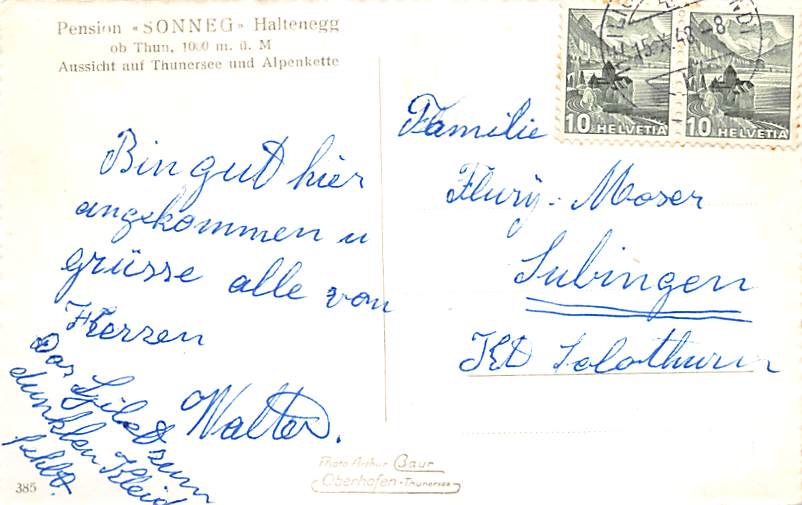 Pension «SONNEG» Haltenegg
ob Thun, 1000 m. ü. M
Aussicht auf Thunersee und Alpenkette
Bin gut hier
angekommen u
grüsse alle von
Herzen
Walter.
Das Gilet zum
dunklen Kleid
fehlt.
Familie
Flury-Moser
Subingen
Kt Solothurn
10 HELVETIA
10 HELVETIA
15.X.48-8
Photo Arthur Baur
Oberhofen-Thunersee
385